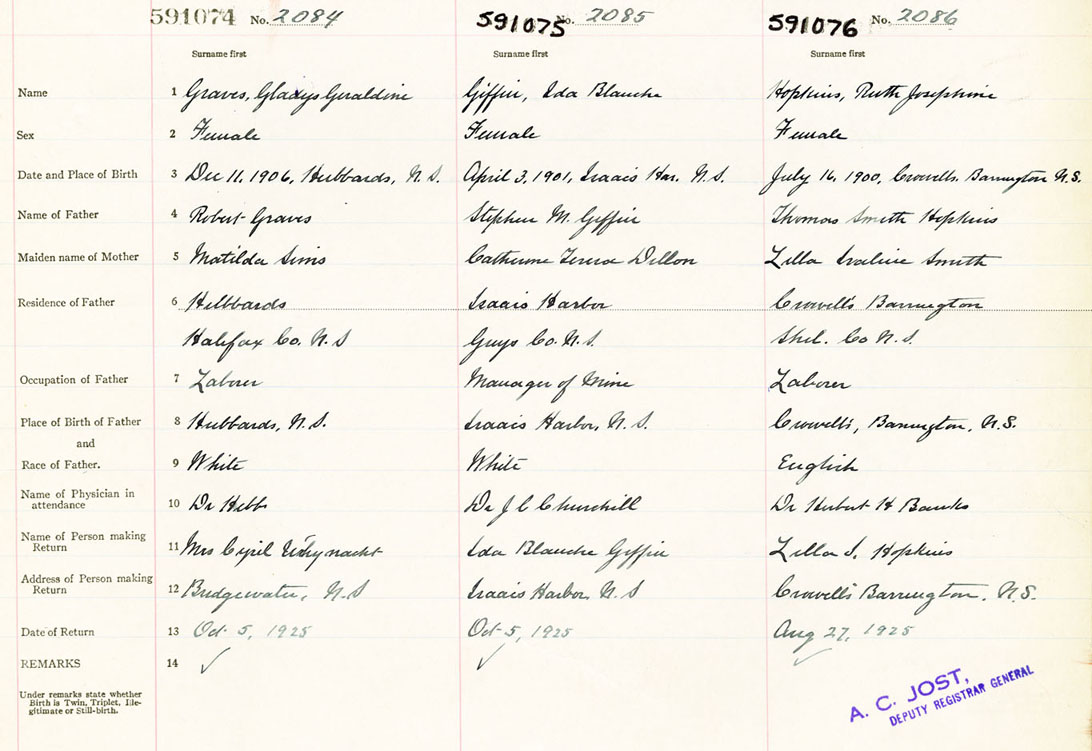 591074 No. 2084 591075 No. 2085 591076 No. 2086
Surname first Surname first Surname first
Name 1 Graves, Gladys Geraldine Giffin, Ida Blanche Hopkins, Ruth Josephine
Sex 2 Female Female Female
Date and Place of Birth 3 Dec 11, 1906, Hubbards, N.S. April 3, 1901, Isaacs Har. N.S. July 16, 1900, Crowells, Barrington N.S.
Name of Father 4 Robert Graves Stephen M. Giffin Thomas Smith Hopkins
Maiden name of Mother 5 Matilda Sims Catherine Teresa Dillon Zilla Smith
Residence of Father 6 Hubbards Isaacs Harbor Crowell's Barrington
Halifax Co. N.S Guys Co. N.S. Shel. Co N.S.
Occupation of Father 7 Laborer Manager of Mine Laborer
Place of Birth of Father 8 Hubbards, N.S. Isaacs Harbor, N.S. Crowell's, Barrington, N.S.
and
Race of Father. 9 White White English
Name of Physician in
attendance 10 Dr Hebb Dr J C Churchill Dr Herbert H Banks
Name of Person making
Return 11 Mrs Cyril Whynacht Ida Blanche Giffin Zilla S. Hopkins
Address of Person making
Return 12 Bridgewater, N.S Isaacs Harbor, N.S Crowell's Barrington, N.S.
Date of Return 13 Oct 5, 1925 Oct 5, 1925 Aug 27, 1925
REMARKS 14 ✓ ✓ ✓
Under remarks state whether
Birth is Twin, Triplet, Ille-
gitimate or Still-birth.
A. C. JOST,
DEPUTY REGISTRAR GENERAL